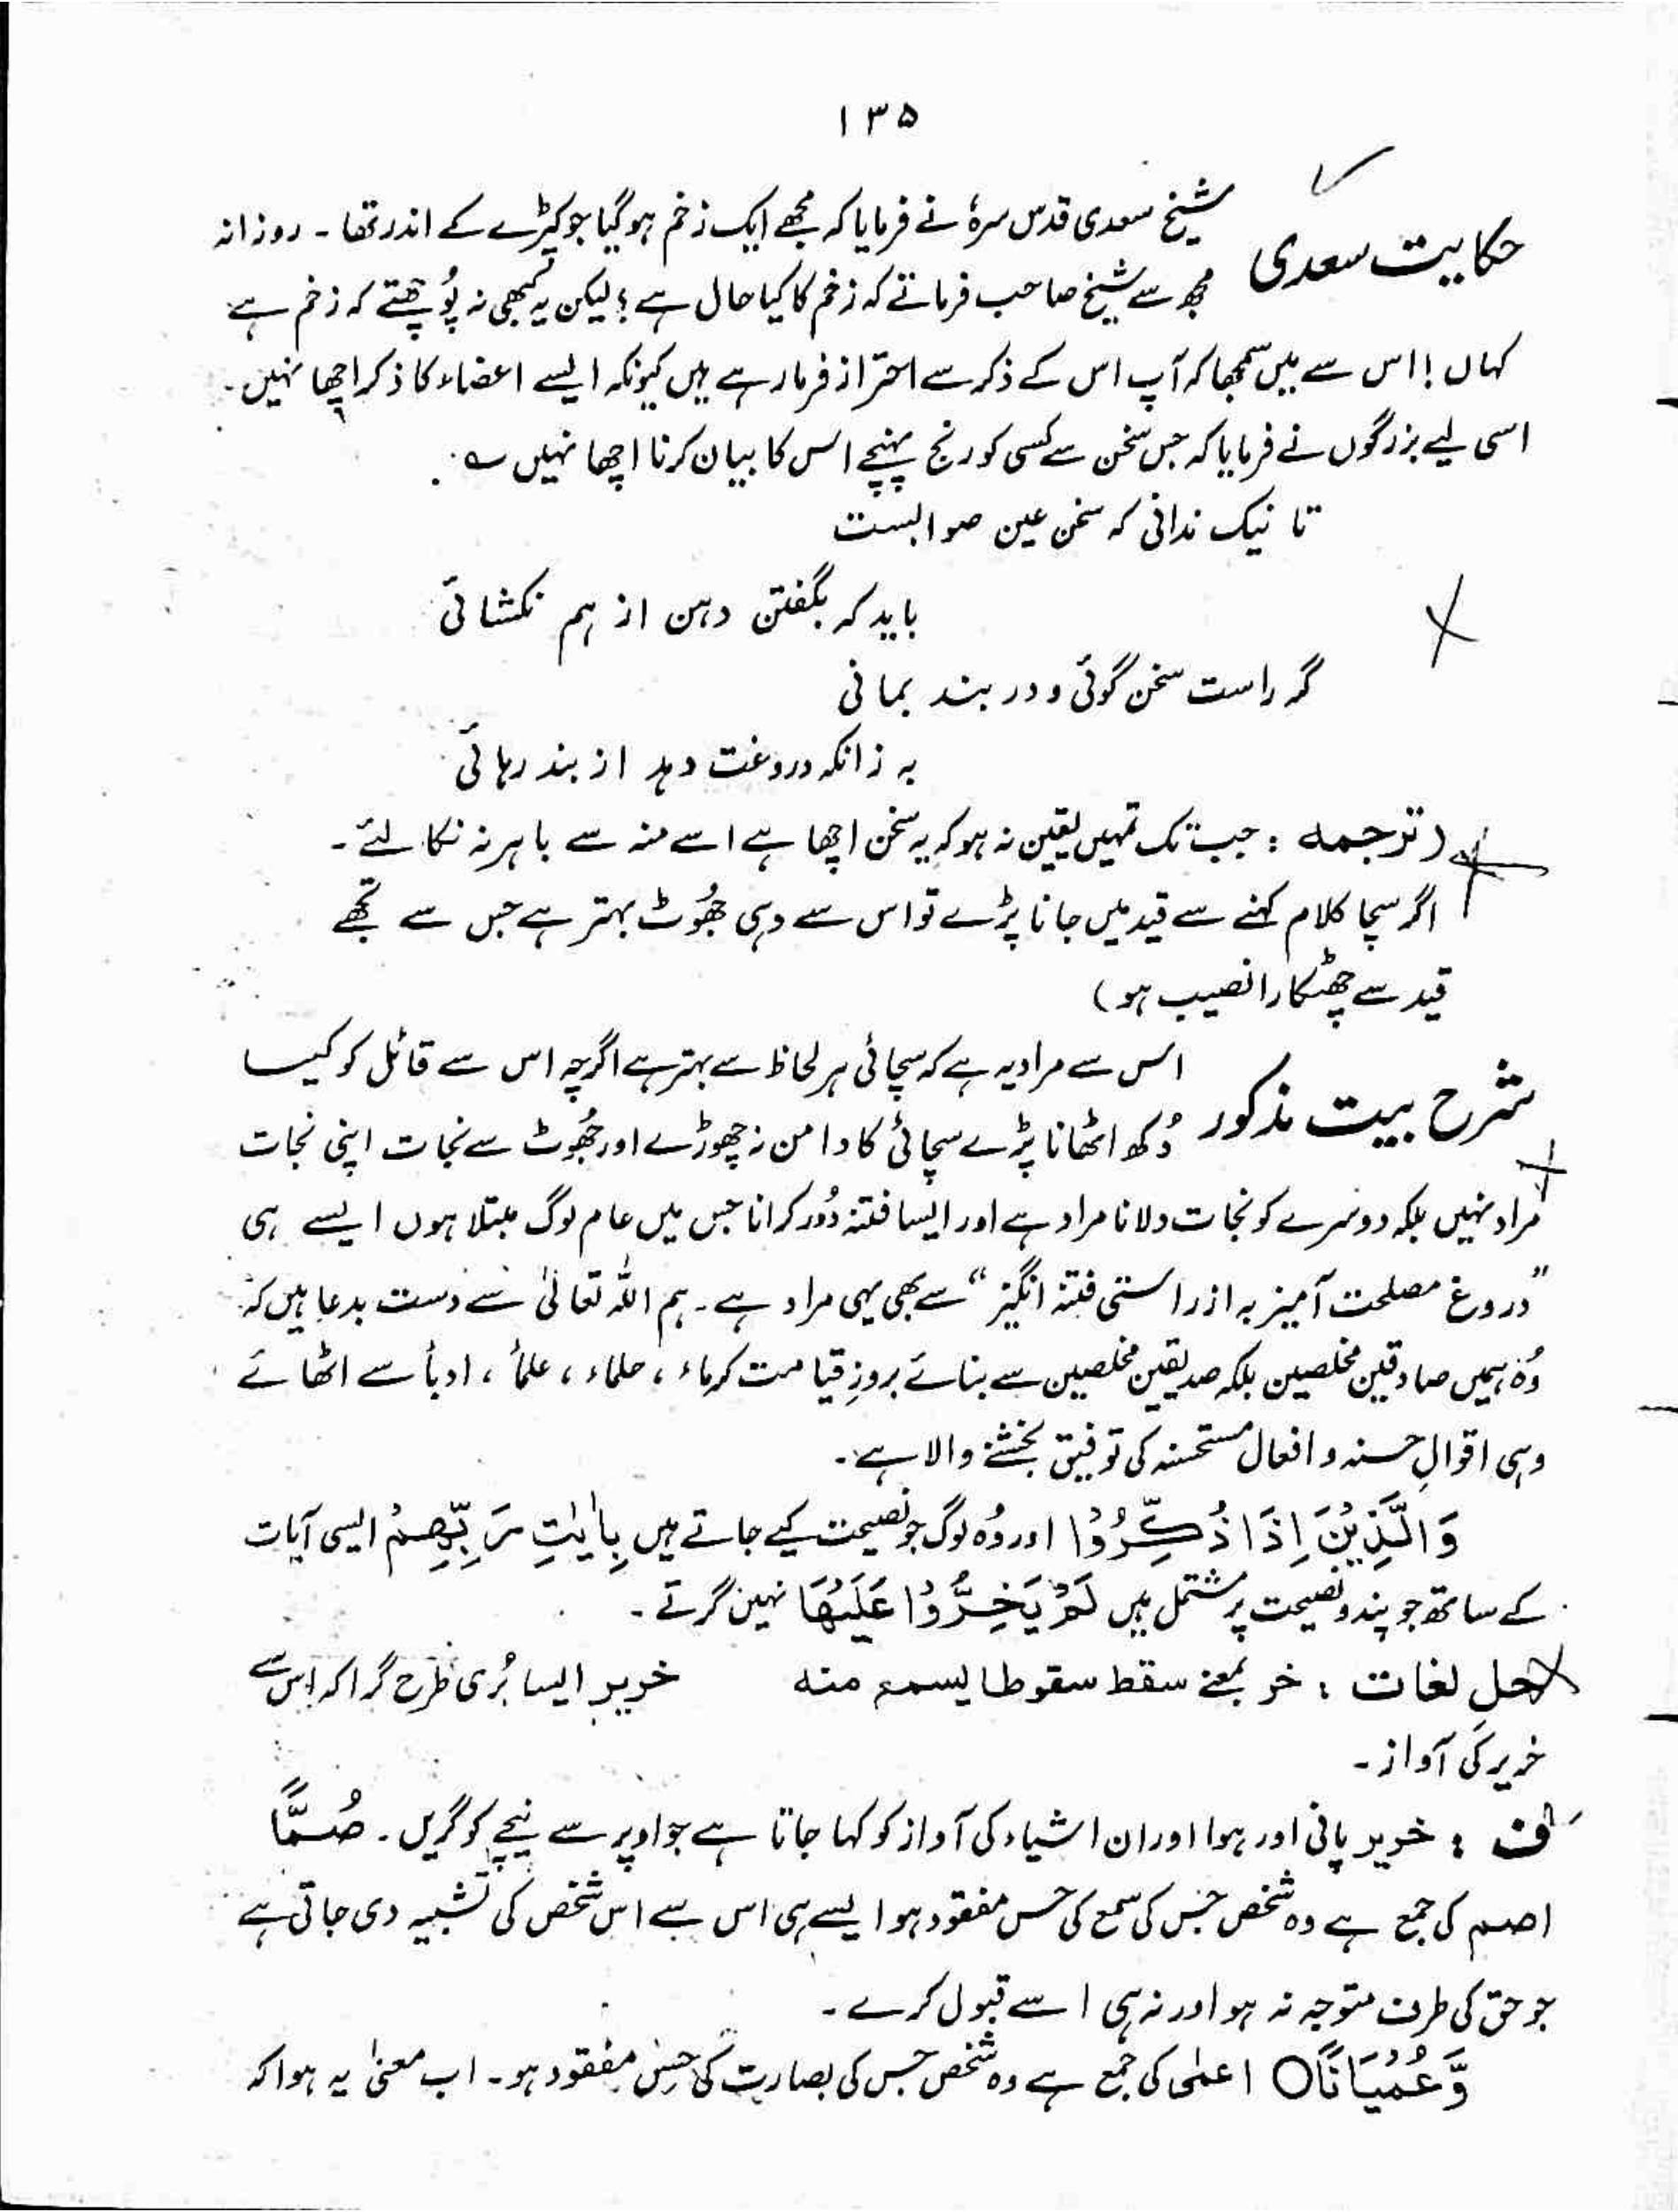 ۱۳۵
حکایت سعدی شیخ سعدی قدس سرہٗ نے فرمایا کہ مجھے ایک زخم ہو گیا جو کپڑے کے اندر تھا ۔ روزانہ
مجھ سے شیخ صاحب فرماتے کہ زخم کا کیا حال ہے ؛ لیکن یہ کبھی نہ پُوچھتے کہ زخم ہے
کہاں ! اس سے میں سمجھا کہ آپ اس کے ذکر سے احتراز فرما رہے ہیں کیونکہ ایسے اعضاء کا ذکر اچھا نہیں ۔
اسی لیے بزرگوں نے فرمایا کہ جس سخن سے کسی کو رنج پہنچے اس کا بیان کرنا اچھا نہیں ؎
تا نیک ندانی کہ سخن عین صوابست
باید کہ بگفتن دہن از ہم نکشائی
گر راست سخن گوئی و در بند بمانی
بہ زانکہ دروغت دہد از بند رہائی
(ترجمہ : جب تک تمہیں یقین نہ ہو کہ یہ سخن اچھا ہے اسے منہ سے باہر نہ نکالئے ۔
اگر سچا کلام کہنے سے قید میں جانا پڑے تو اس سے وہی جھُوٹ بہتر ہے جس سے تجھے
قید سے چھٹکارا نصیب ہو)
شرح بیت مذکور اس سے مراد یہ ہے کہ سچائی ہر لحاظ سے بہتر ہے اگرچہ اس سے قائل کو کیسا
دُکھ اٹھانا پڑے سچائی کا دامن نہ چھوڑے اور جھُوٹ سے نجات اپنی نجات
مراد نہیں بلکہ دوسرے کو نجات دلانا مراد ہے اور ایسا فتنہ دُور کرانا جس میں عام لوگ مبتلا ہوں ایسے ہی
”دروغ مصلحت آمیز بہ از راستی فتنہ انگیز“ سے بھی یہی مراد ہے ۔ ہم اللہ تعالیٰ سے دست بدعا ہیں کہ
وُہ ہمیں صادقین مخلصین بلکہ صدیقین مخلصین سے بنائے بروزِ قیامت کرماء ، حلماء ، علمأ ، ادبأ سے اٹھائے
وہی اقوالِ حسنہ و افعال مستحسنہ کی توفیق بخشنے والا ہے ۔
وَالَّذِیْنَ اِذَا ذُکِّرُوْا اور وُہ لوگ جو نصیحت کیے جاتے ہیں بِاٰیٰتِ رَبِّھِمْ ایسی آیات
کے ساتھ جو پند و نصیحت پر مشتمل ہیں لَمْ یَخِرُّوْا عَلَیْھَا نہیں گرتے ۔
حل لغات : خر بمعنے سقط سقوطا یسمع منہ خریر ایسا بُری طرح گرا کہ اس سے
خریر کی آواز ۔
ف : خریر پانی اور ہوا اور ان اشیاء کی آواز کو کہا جاتا ہے جو اوپر سے نیچے کو گریں ۔ صُمًّا
اصم کی جمع ہے وہ شخص جس کی سمع کی حس مفقود ہو ایسے ہی اس سے اس شخص کی تشبیہ دی جاتی ہے
جو حق کی طرف متوجہ نہ ہو اور نہ ہی اسے قبول کرے ۔
وَّعُمْیَانًا○ اعمٰی کی جمع ہے وہ شخص جس کی بصارت کی حِس مفقود ہو ۔ اب معنیٰ یہ ہوا کہ